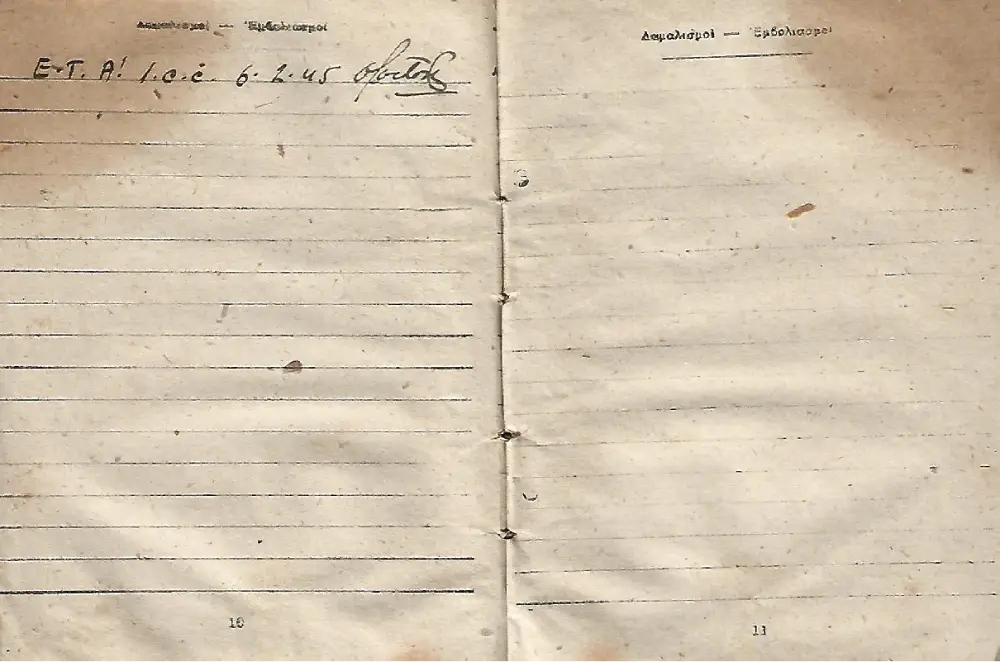 Δαμαλισμοί — Ἐμβολιασμοί
E-T. A! 1.c.c. 6.2.45
10
Δαμαλισμοί — Ἐμβολιασμοί
11